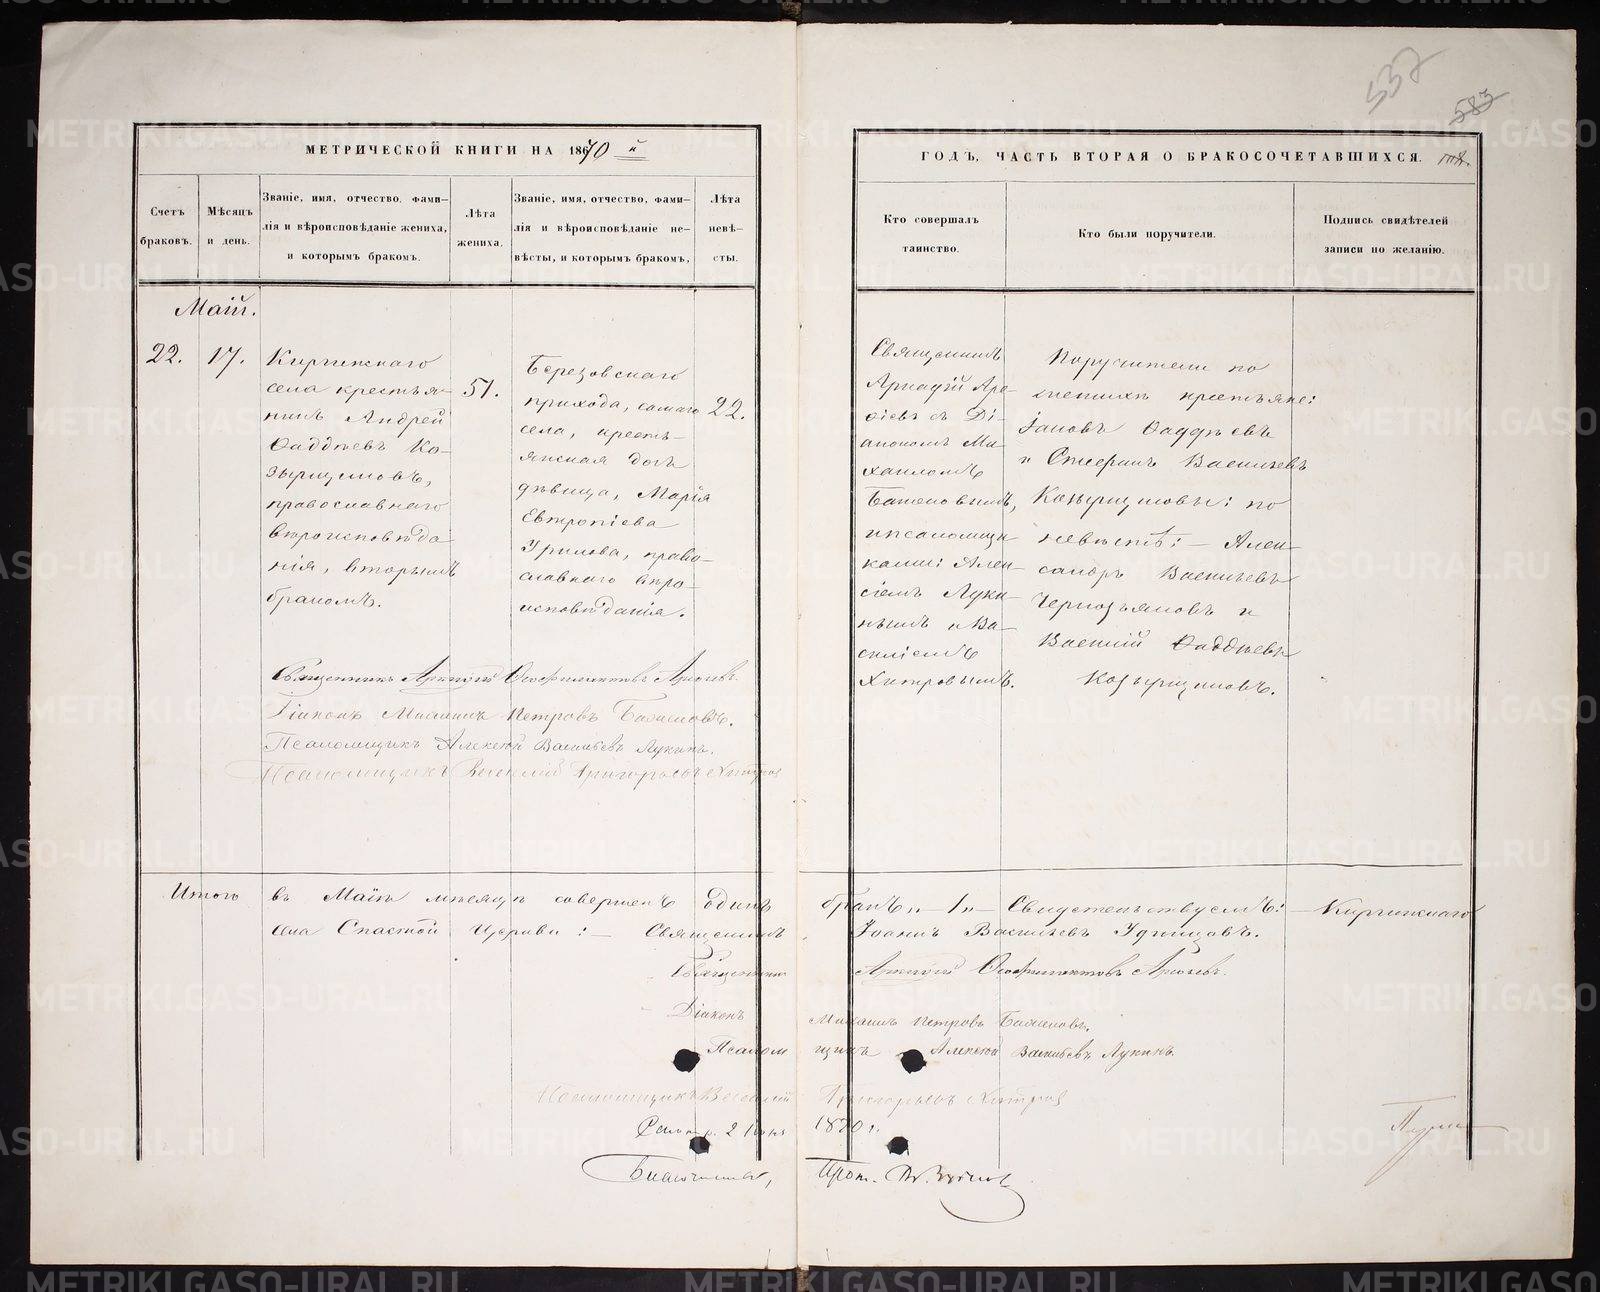 537
583
МЕТРИЧЕСКОЙ КНИГИ НА 1870 й
ГОДЪ, ЧАСТЬ ВТОРАЯ О БРАКОСОЧЕТАВШИХСЯ.
Счетъ
браковъ.
Мѣсяцъ
и день.
Званіе, имя, отчество, фами-
лія и вѣроисповѣданіе жениха,
и которымъ бракомъ.
Лѣта
жениха.
Званіе, имя, отчество, фами-
лія и вѣроисповѣданіе не-
вѣсты, и которымъ бракомъ,
Лѣта
невѣ-
сты.
Кто совершалъ
таинство.
Кто были поручители.
Подпись свидѣтелей
записи по желанію.
Маій.
22.
17.
Киргижскаго
села крестья-
нинъ Андрей
Ѳаддѣевъ Ко-
зырщиковъ,
православнаго
вѣроисповѣда
нія, вторымъ
бракомъ.
51.
Березовскаго
прихода, самаго
села, кресть-
янская дочь
дѣвица, Марія
Евтропіева
Урилова, право-
славнаго вѣро-
исповѣданія.
22.
Священникъ
Аркадій Аре-
фіевъ съ Ді-
акономъ Ми-
хаиломъ
и псаломщи
ками: Алек-
сіемъ Луки-
нымъ и Ва-
силіемъ
Хитровымъ.
Поручители по
женихѣ крестьяне:
Іаковъ Ѳаддѣевъ
и Стефанъ Васильевъ
Козырщиковы: по
невѣстѣ: - Алек-
сандръ Васильевъ
Чернозъямовъ и
Василій Ѳаддѣевъ
Козырщиковъ.
Священникъ Аркадій Ѳеофилактовъ Арефьевъ.
Діаконъ Михаилъ Петровъ
Псаломщикъ Алексѣй Васильевъ Лукинъ.
Псаломщикъ Василій Григорьевъ Хитровъ
Итого въ Маіѣ мѣсяцѣ совершенъ одинъ бракъ „—1„— Свидетельствуемъ: — Киргижскаго
села Спаской Церкви: — Священникъ Іоаннъ Васильевъ Удинцовъ.
Священникъ Аркадій Ѳеофилактовъ Арефьевъ.
Діаконъ Михаилъ Петровъ
Псаломщикъ Алексѣй Васильевъ Лукинъ.
Псаломщикъ Василій Григорьевъ Хитровъ
1870 г.
Благочинный, Прот.
METRIKI.GASO-URAL.RU